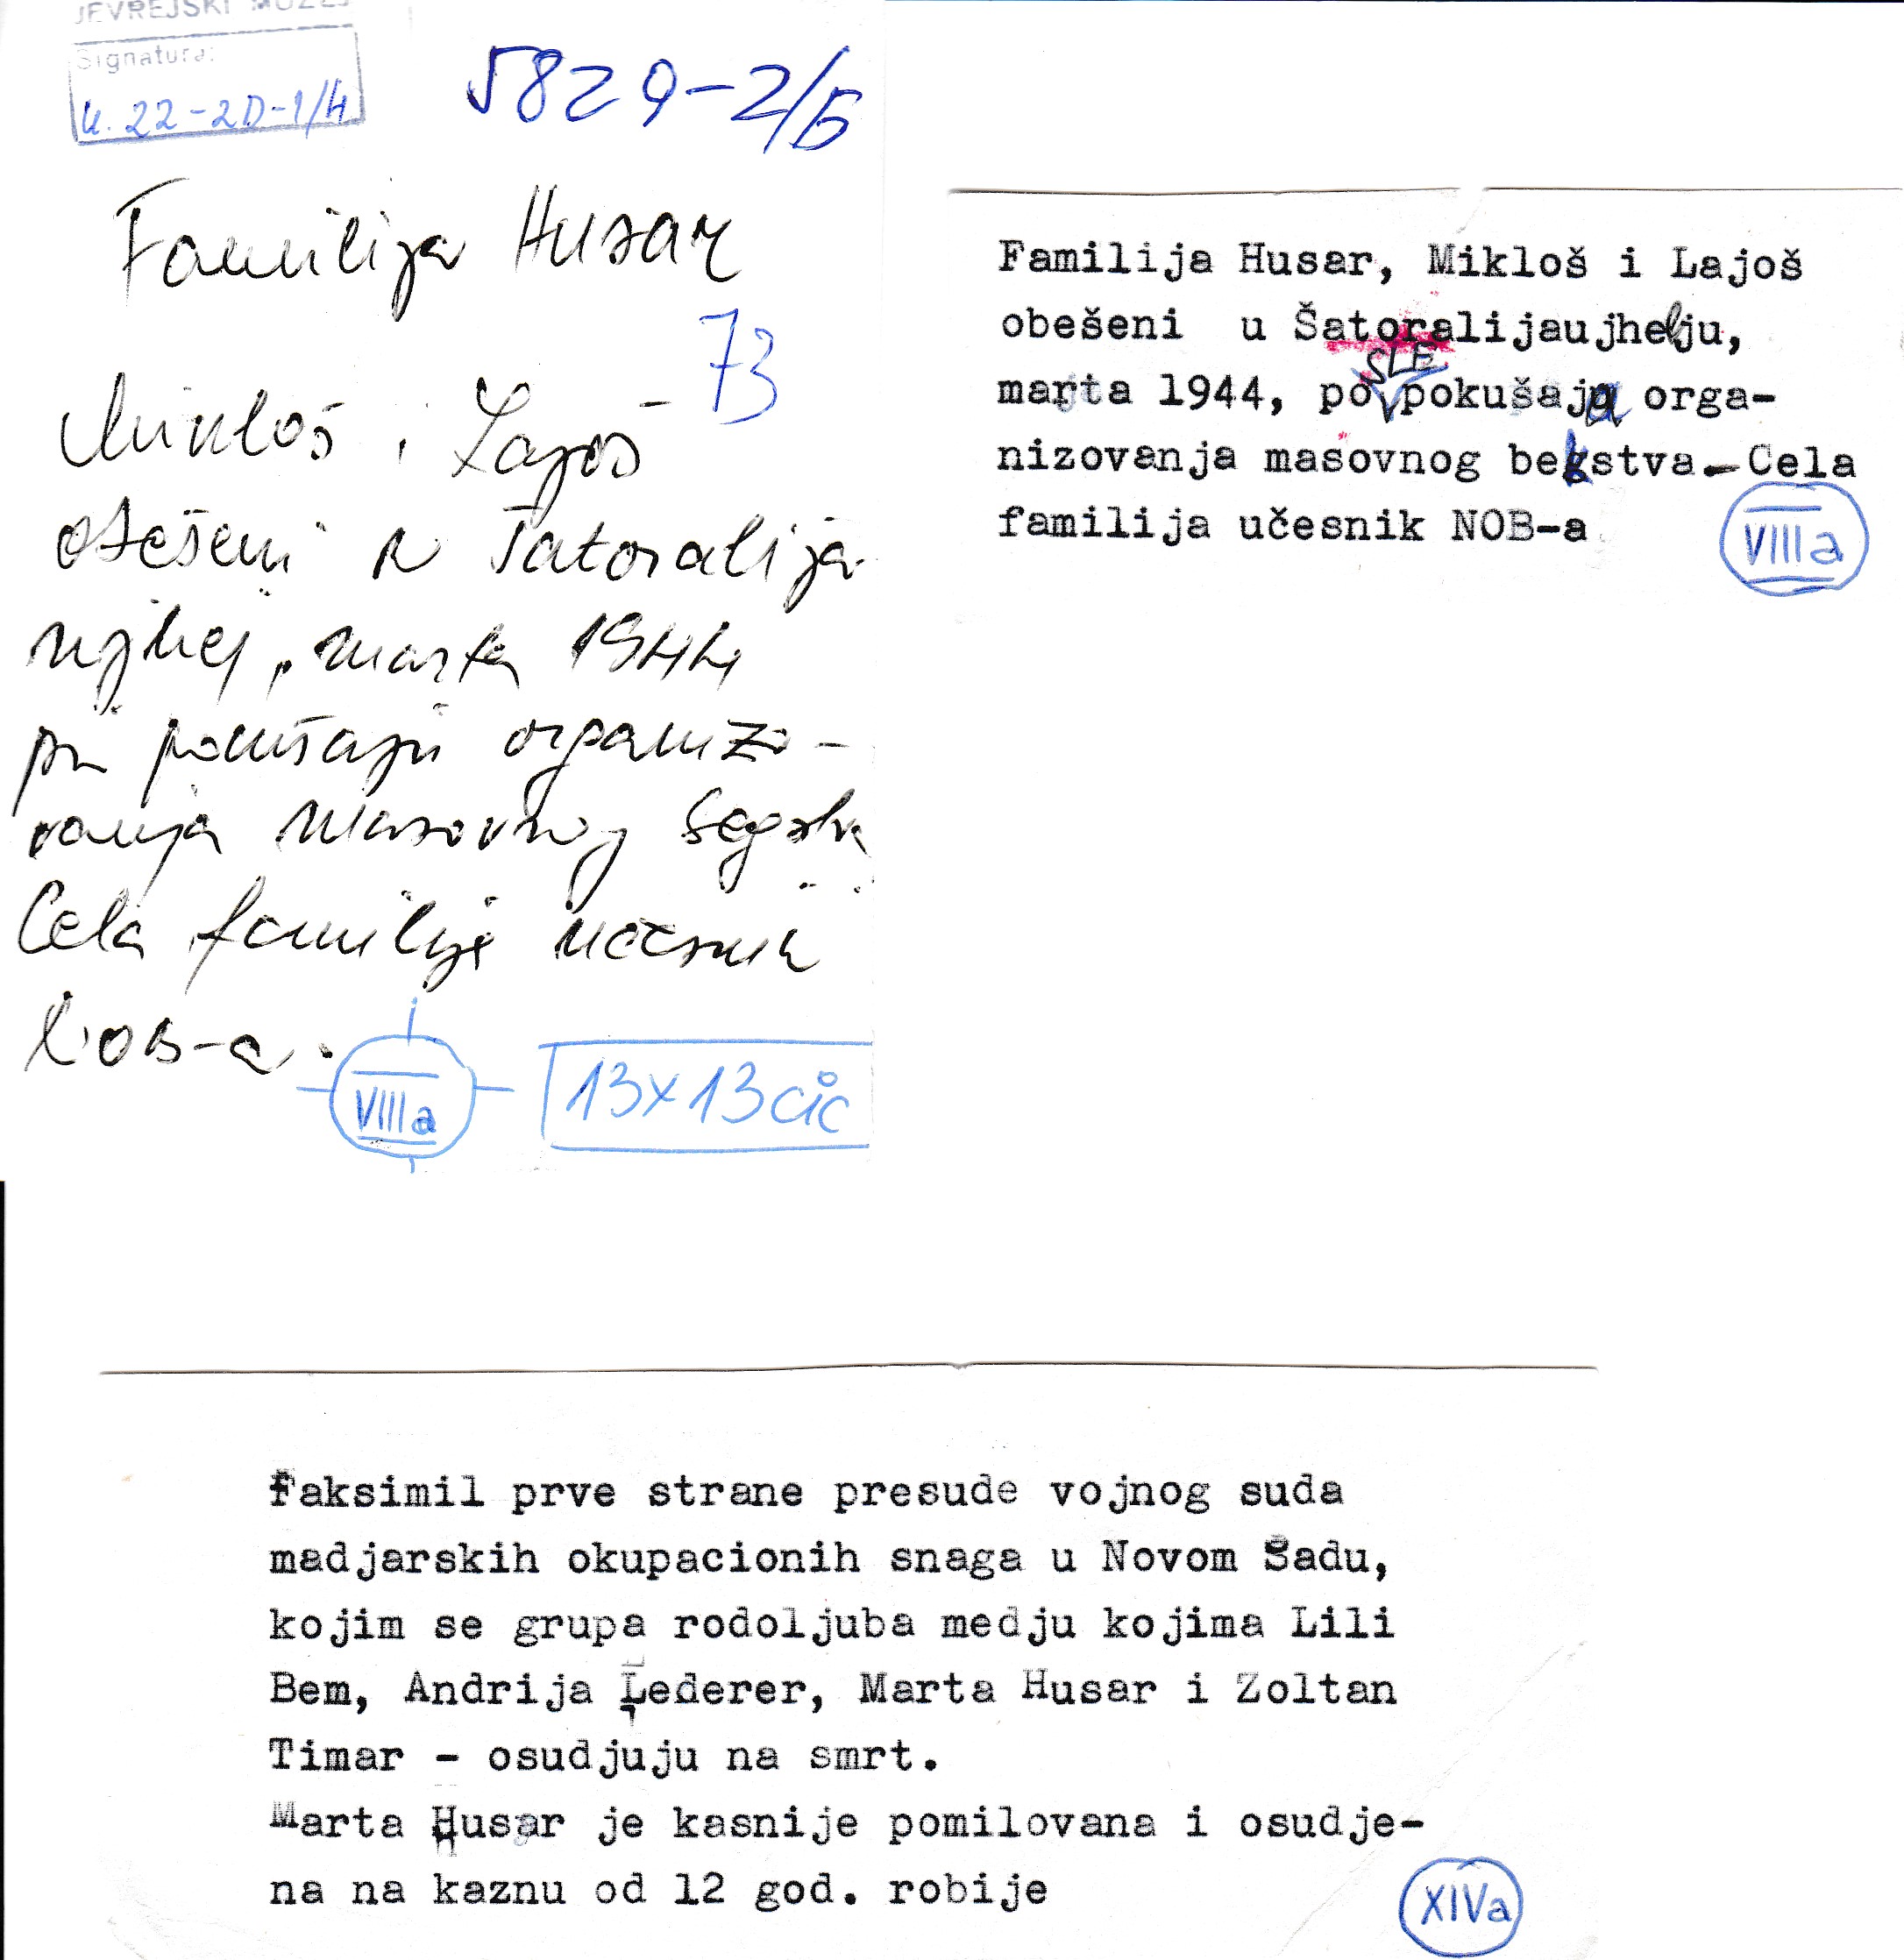 JEVREJSKI MUZEJ
Signatura:
K. 22-2D-1/4
5829-2/Б
Familija Husar
73
Mikloš i Lajoš -
obešeni u Šatoralija
ujhej, marta 1944
pri pokušaju organizo-
vanja masovnog begstva
Cela familija učesnik
NOB-a.
VIIIa
13x13 cic
Familija Husar, Mikloš i Lajoš
obešeni u Šatoralijaujhelju,
marta 1944, po SLE pokušaja orga-
nizovanja masovnog bekstva - Cela
familija učesnik NOB-a
VIIIa
Faksimil prve strane presude vojnog suda
madjarskih okupacionih snaga u Novom Sadu,
kojim se grupa rodoljuba medju kojima Lili
Bem, Andrija Lederer, Marta Husar i Zoltan
Timar - osudjuju na smrt.
Marta Husar je kasnije pomilovana i osudje-
na na kaznu od 12 god. robije
XIVa